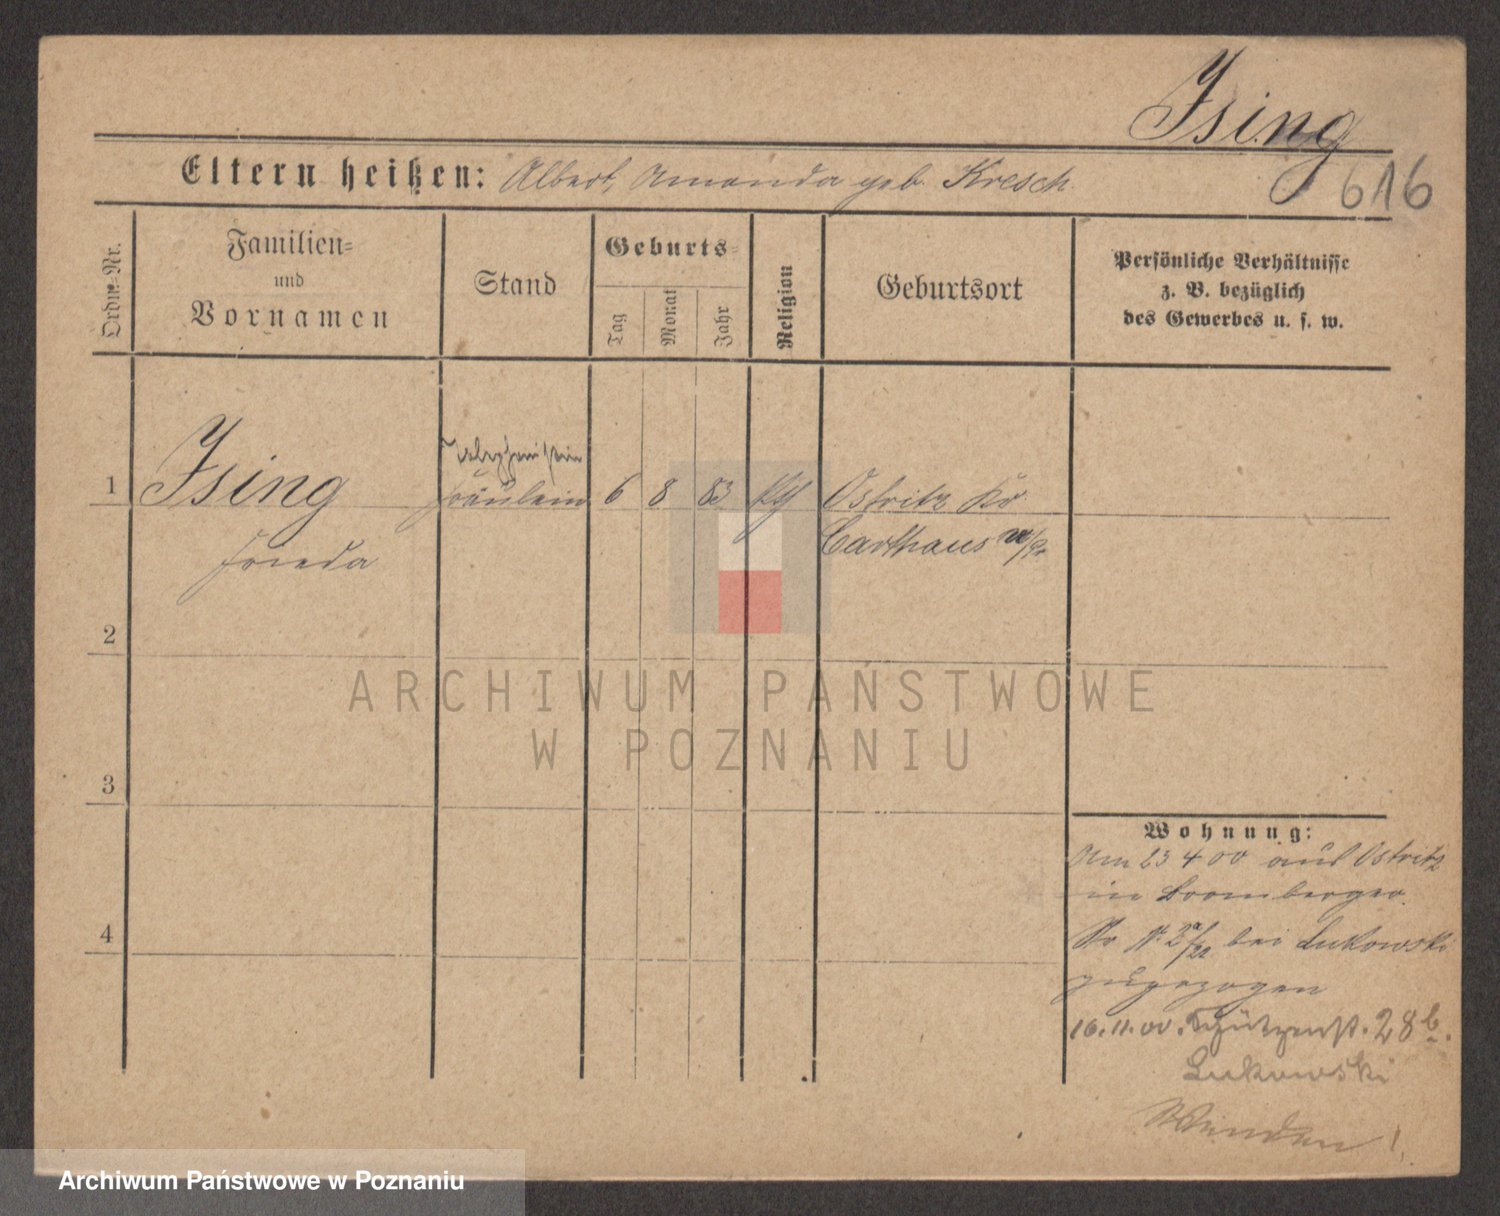 Ising
Eltern heißen: Albert, Amanda geb. Kresch.
616
Ordn.-Nr.
Familien-
und
Vornamen
Stand
Geburts-
Tag
Monat
Jahr
Religion
Geburtsort
Persönliche Verhältnisse
z. B. bezüglich
des Gewerbes u. s. w.
Telephonistin
1 Ising Fräulein 6 8 83 Ostritz Kr.
Frieda Carthaus W/Pr.
2
3
4
ARCHIWUM PAŃSTWOWE
W POZNANIU
Wohnung:
Am 23 4 00 aus Ostritz
in Bromberger
Str No bei Lukowski
zugezogen
16.11.00. Schützenst. 28b.
Lukowski
Wenden!
Archiwum Państwowe w Poznaniu